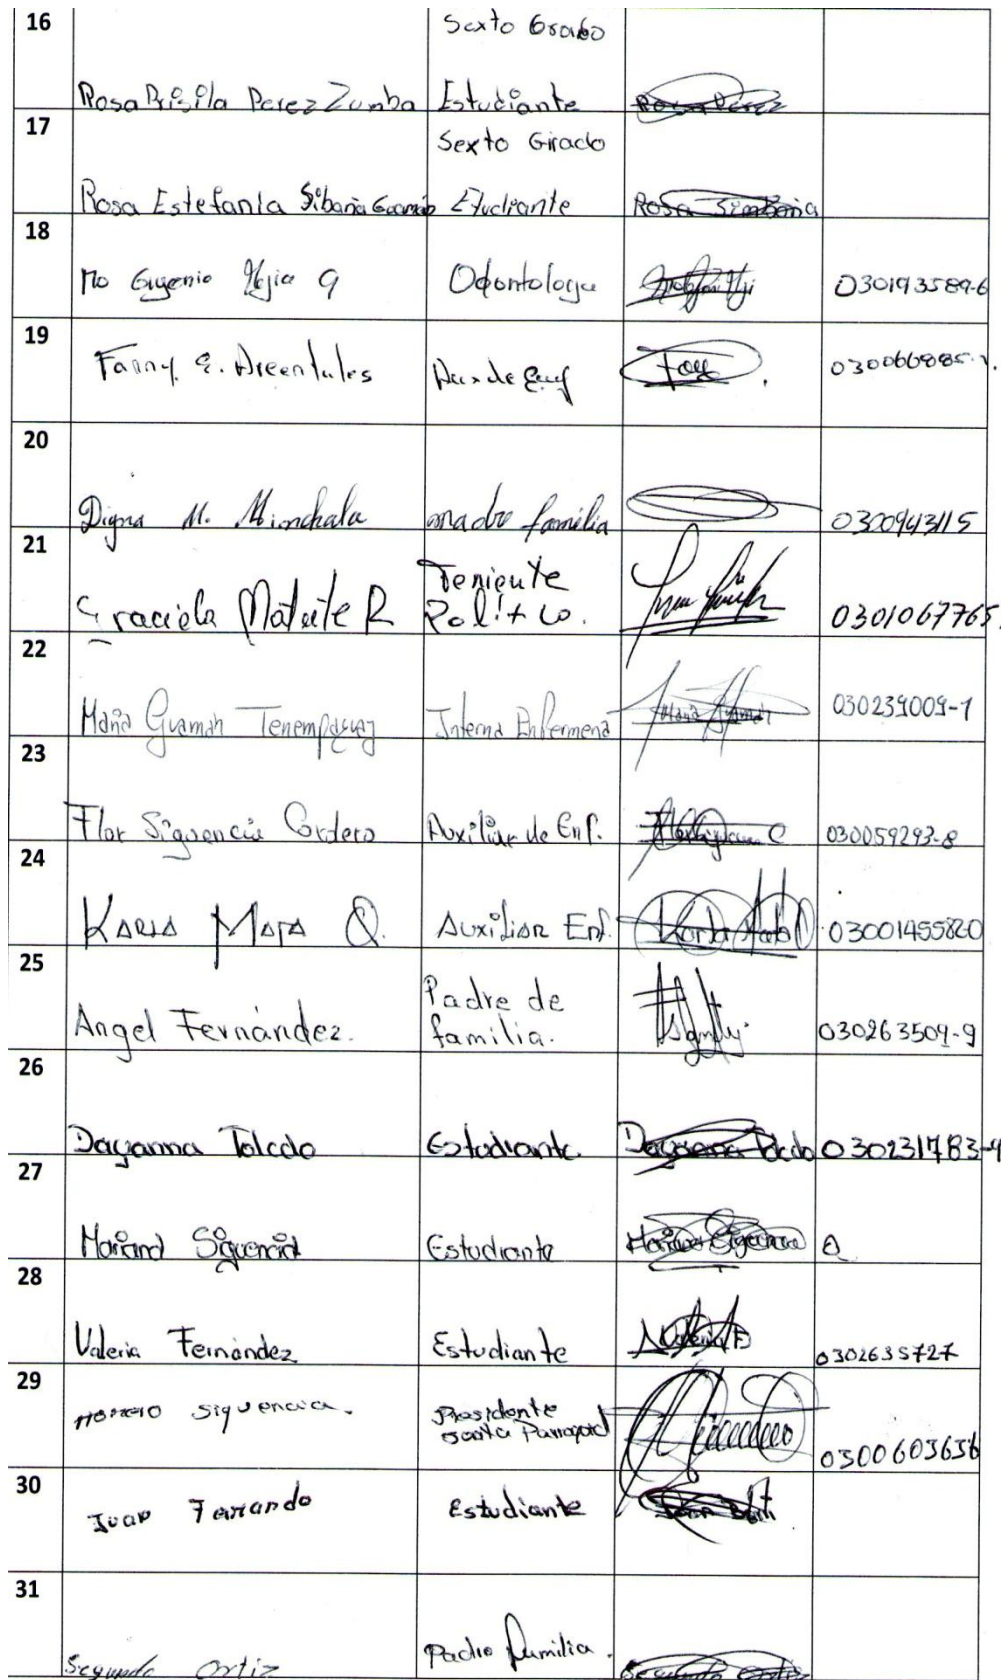 16
Sexto Grado
Rosa Prisila Perez Zumba Estudiante Rosa Perez
17
Sexto Grado
Rosa Estefania Sibaña Guamán Etudiante Rosa Simbaña
18
Ma Eugenia Mejia G Odontologa 030193589-6
19
Fanny E. Aux de Enf
20
Digna M. Minchala madre familia 0300943115
21
Teniente
Graciela Matute R Politco. 0301067765
22
Maria Guamán Tenempaguay Interna Enfermera Maria Guamán 030239009-1
23
Flor Siguencia Cordero Auxiliar de Enf. 030059293-8
24
Karla Mata Q. Auxiliar Enf. Karla Mata 03001455820
25
Padre de
Angel Fernández. familia. 030263509-9
26
Dayanna Toledo Estudiante. Dayanna Toledo 030231783-4
27
Siguencia Estudiante Siguencia
28
Valeria Fernández Estudiante Valeria F 0302635727
29
Homero Siguencia. Presidente
Parroquial 0300603636
30
Juan Fernando Estudiante
31
Segundo Ortiz Padre familia. Segundo Ortiz